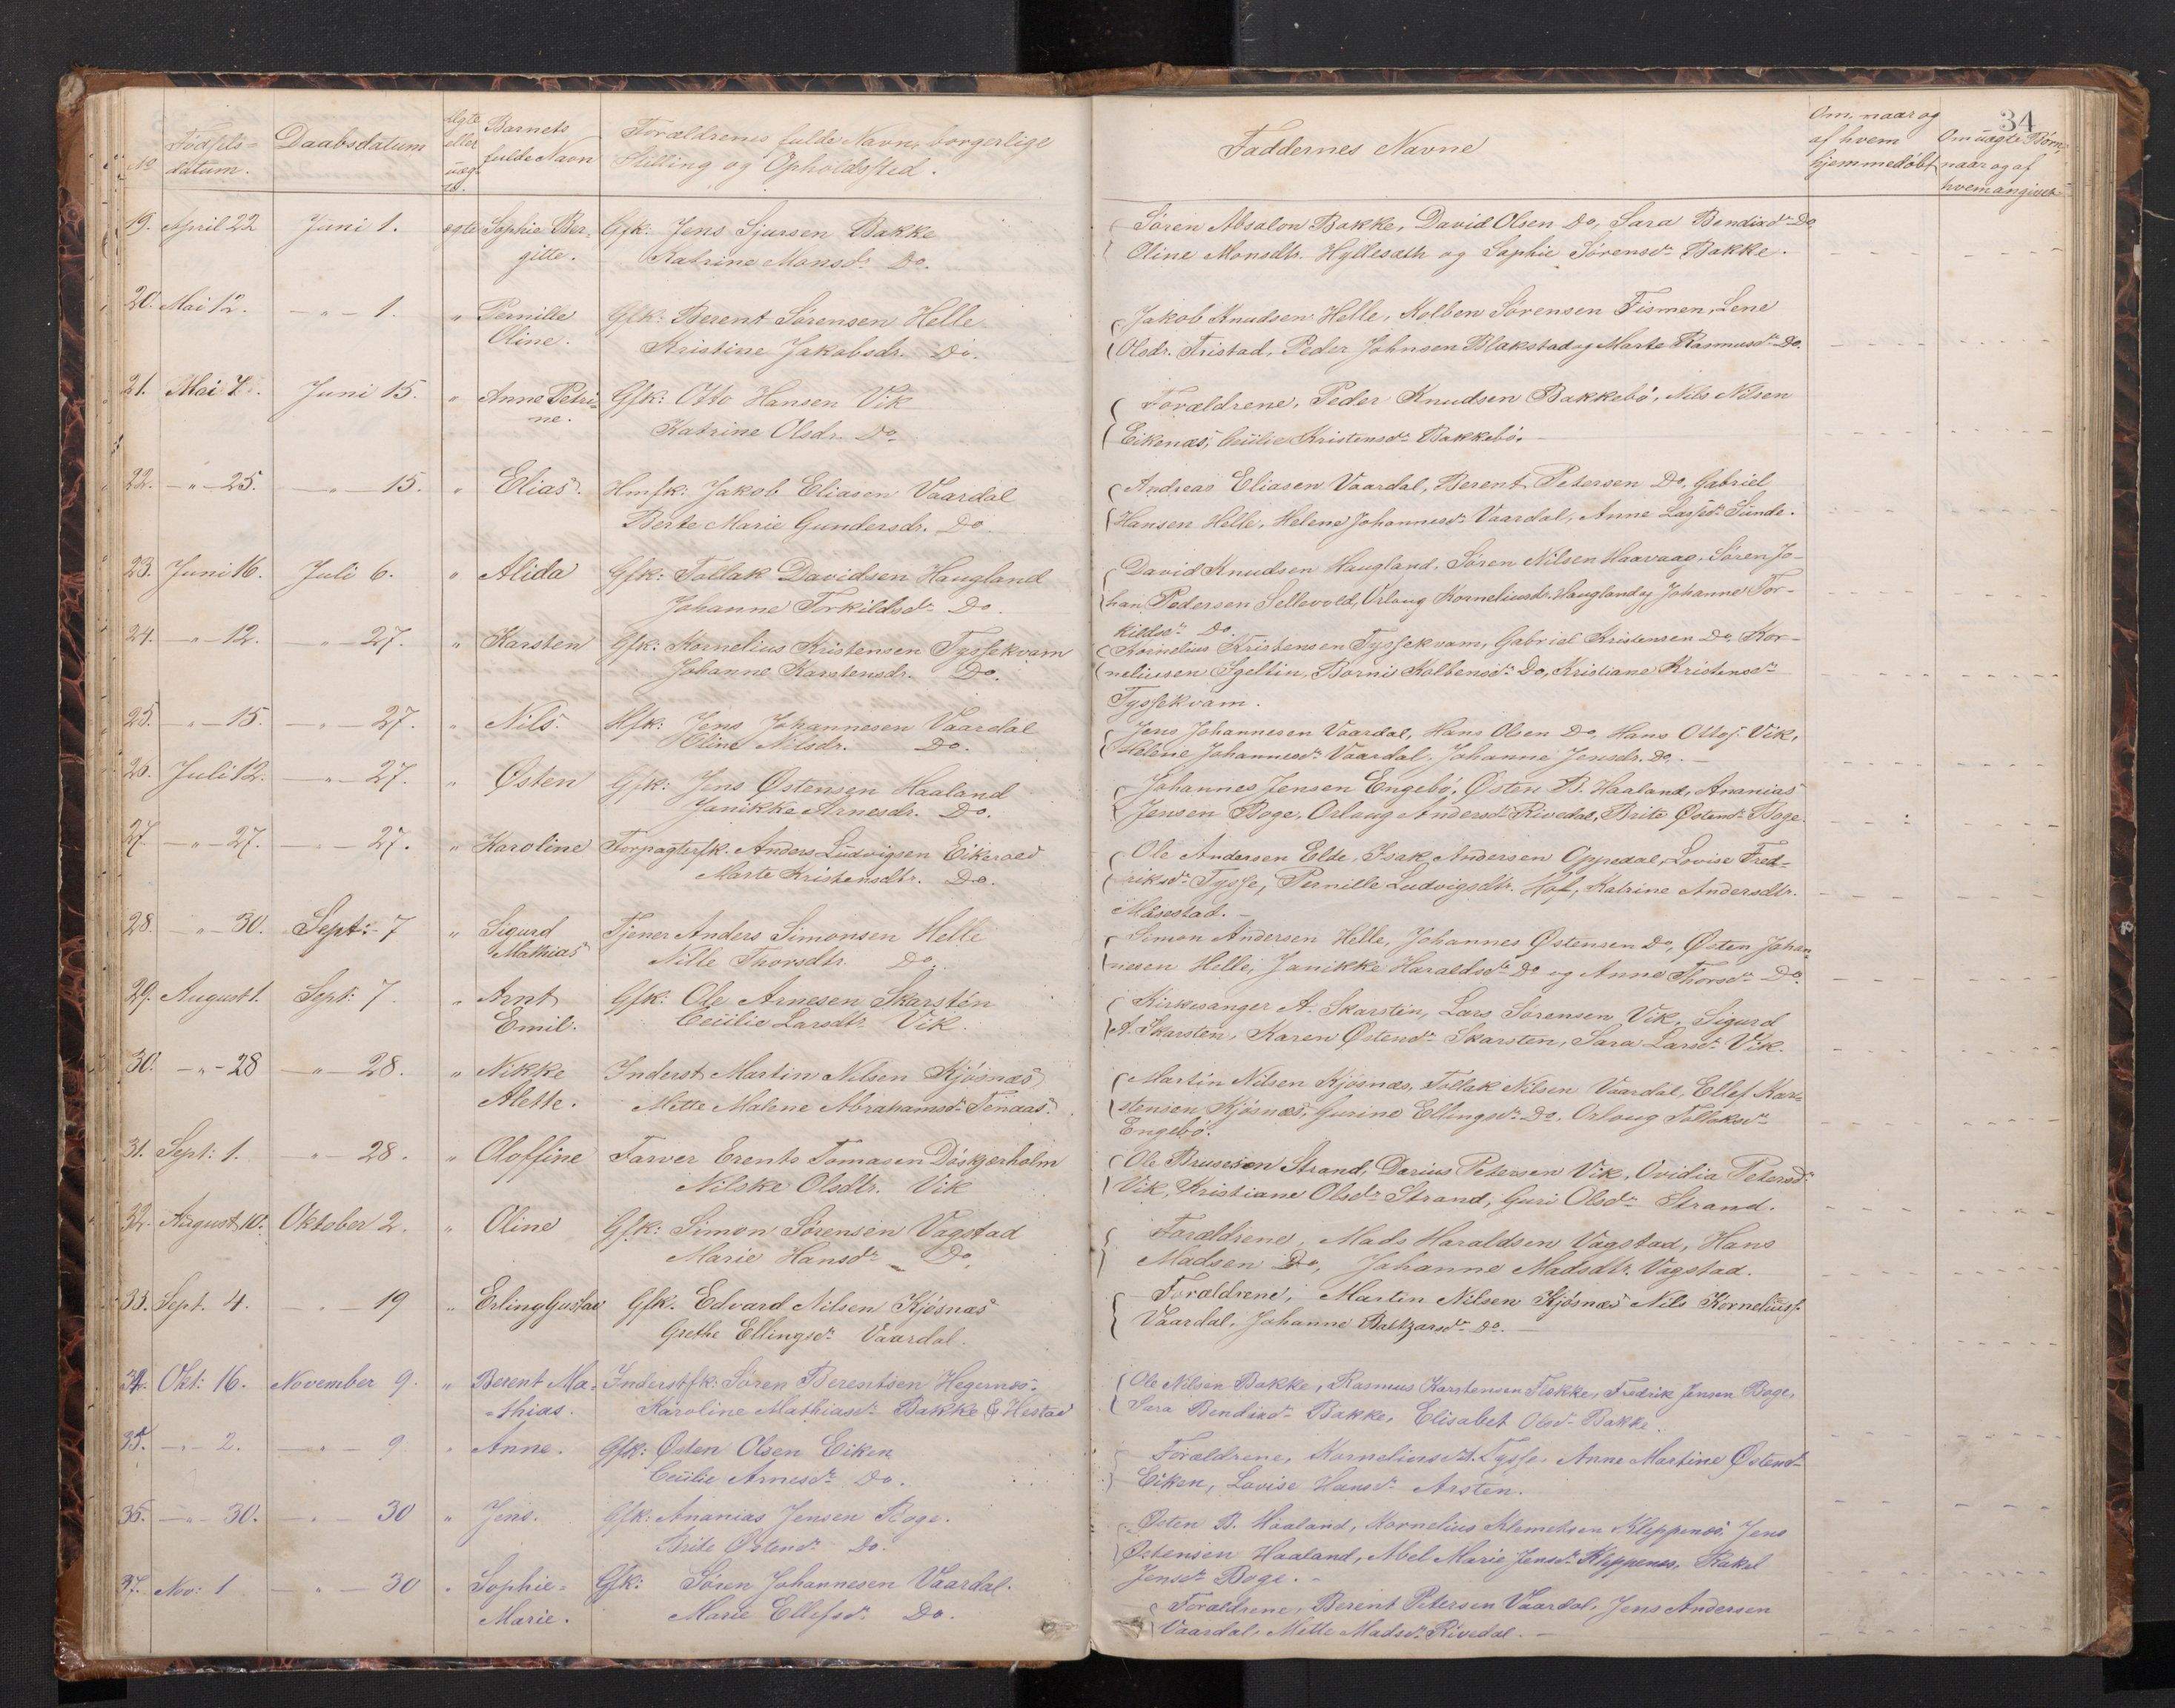 34
No
Fødsels-
datum.
Daabsdatum
Ægte
eller
uæg-
te.
Barnets
fulde Navn
Forældrenes fulde Navne, borgerlige
Stilling og Opholdssted.
Faddernes Navne
Om, naar og
af hvem
hjemmedøbt
Om uægte Børn,
naar og af
hvem angivet
19. April 22 Juni 1. ægte Sophie Ber- Gfk: Jens Sjursen Bakke
gitte. Katrine Monsdr. Do.
Søren Absalon Bakke, David Olsen Do, Sara Bendixdr. Do
Oline Monsdtr. Hyllesæth og Sophie Sørensdr. Bakke.
20. Mai 12. — " — 1. " Pernille Gfk: Berent Sørensen Helle
Oline. Kristine Jakobsdr. Do.
Jakob Knudsen Helle, Kolben Sørensen Fismen, Lene
Olsdr. Tristad, Peder Johnsen Blokstad og Marte Rasmusdr. Do.
21. Mai 7. Juni 15. " Anne Petri- Gfk: Otto Hansen Vik
ne. Katrine Olsdr. Do.
Forældrene, Peder Knudsen Bakkebø, Nils Nilsen
Eikenæs, Cecilie Kristensdr. Bakkebø.
22. — " — 25. — " — 15. " Elias. Hmfk: Jakob Eliasen Vaardal
Berte Marie Gundersdr. Do
Andreas Eliasen Vaardal, Berent Petersen Do, Gabriel
Hansen Helle, Helene Johannesdr. Vaardal, Anne Larsdr. Sunde.
23. Juni 16. Juli 6. " Alida Gfk: Tollak Davidsen Haugland
Johanne Torkildsdr. Do.
David Knudsen Haugland, Søren Nilsen Haavaag, Søren Jo-
han Pedersen Sellevold, Orlaug Korneliusdr. Haugland og Johanne Tor-
kildsdr. Do.
24. — " — 12. — " — 27. " Karsten Gfk: Kornelius Kristensen Tyssekvam
Johanne Karstensdr. Do.
Kornelius Kristensen Tyssekvam, Gabriel Kristensen Do, Kor-
neliusen Sgeltin, Borni Kolbensdr. Do, Kristiane Kristensdr.
Tyssekvam.
25. — " — 15. — " — 27. " Nils. Gfk: Jens Johannesen Vaardal
Oline Nilsdr. Do.
Jens Johannesen Vaardal, Hans Olsen Do, Hans Ottos. Vik,
Helene Johannesdr. Vaardal, Johanne Jensdr. Do. —
26. Juli 12. — " — 27. " Østen Gfk: Jens Østensen Haaland
Janikke Arnesdr. Do.
Johannes Jensen Engebø, Østen B. Haaland, Ananias
Jensen Boge, Orlaug Andersdr. Rivedal, Brite Østensdr. Boge.
27. — " — 27. — " — 27. " Karoline Forpagterfk. Anders Ludvigsen Eikeroed
Marte Kristensdtr. Do.
Ole Andersen Elde, Isak Andersen Oppedal, Lovise Fred-
riksdr. Tysse, Pernille Ludvigsdtr. Hof, Katrine Andersdtr.
Masestad. —
28. — " — 30. Sept: 7 " Sigurd Tjener Anders Simonsen Helle
Mathias Nille Thorsdtr. Do.
Simon Andersen Helle, Johannes Østensen Do, Østen Johan-
nesen Helle, Janikke Haraldsdr. Do og Anne Thorsdr. Do.
29. August 1. Sept: 7. " Arnt Gfk: Ole Arnesen Skarsten
Emil. Cecilie Larsdtr. Vik.
Kirkesanger A. Skarsten, Lars Sørensen Vik, Sigurd
A. Skarsten, Karen Østensdr. Skarsten, Sara Larsdr. Vik.
30. — " — 28 — " — 28. " Nikke Inderst Martin Nilsen Kjøsnæs
Alette. Mette Malene Abrahamsdr. Tenaas.
Martin Nilsen Kjøsnæs, Tollak Nilsen Vaardal, Ellef Kar-
stensen Kjøsnæs, Gurine Ellingsdr. Do, Orlaug Tollaksdr.
Engebø.
31. Sept: 1. " — 28. " Oloffine Farver Erents Tomasen Døskjærholm
Nilske Olsdtr. Vik
Ole Brusesen Strand, Darius Petersen Vik, Ovidia Petersdr.
Vik, Kristiane Olsdr. Strand, Guri Olsdr. Strand.
32. August 10. Oktober 2. " Oline Gfk: Simon Sørensen Vagstad
Marie Hansdr. Do.
Forældrene, Mads Haraldsen Vagstad, Hans
Madsen Do, Johanne Madsdtr. Vagstad.
33. Sept. 4. — " — 19 " Erling Gustav Gfk. Edvard Nilsen Kjøsnæs
Grethe Ellingsdr. Vaardal.
Forældrene, Martin Nilsen Kjøsnæs Nils Korneliuss.
Vaardal, Johanne Baltzarsdr. Do. —
34. Okt: 16. November 9. " Berent Ma- Inderstfk: Søren Berentsen Hegernæs
-thias. Karoline Mathiasdr. Bakke & Hestad
Ole Nilsen Bakke, Rasmus Karstensen Flekke, Fredrik Jensen Boge,
Sara Bendixdr. Bakke, Elisabet Olsdr. Bakke.
35. — " — 2. — " — 9. " Anne. Gfk: Østen Olsen Eiken
Cecilie Arnesdr. Do.
Forældrene, Kornelius Tysse, Anne Martine Østensdr.
Eiken, Lovise Hansdr. Arsten.
36. — " — 30. — " — 30 " Jens. Gfk: Ananias Jensen Boge.
Brite Østensdr. Do.
Østen B. Haaland, Kornelius Klemetsen Kleppenæs, Jens
Østensen Haaland, Abel Marie Jensdr. Kleppenes, Rakel
Jensdr. Boge. —
37. Nov: 1 — " — 30 " Sophie- Gfk: Søren Johannesen Vaardal.
Marie. Marie Ellefsdr. Do.
Forældrene, Berent Petersen Vaardal, Jens Andersen
Vaardal, Mette Madsdr. Rivedal. —